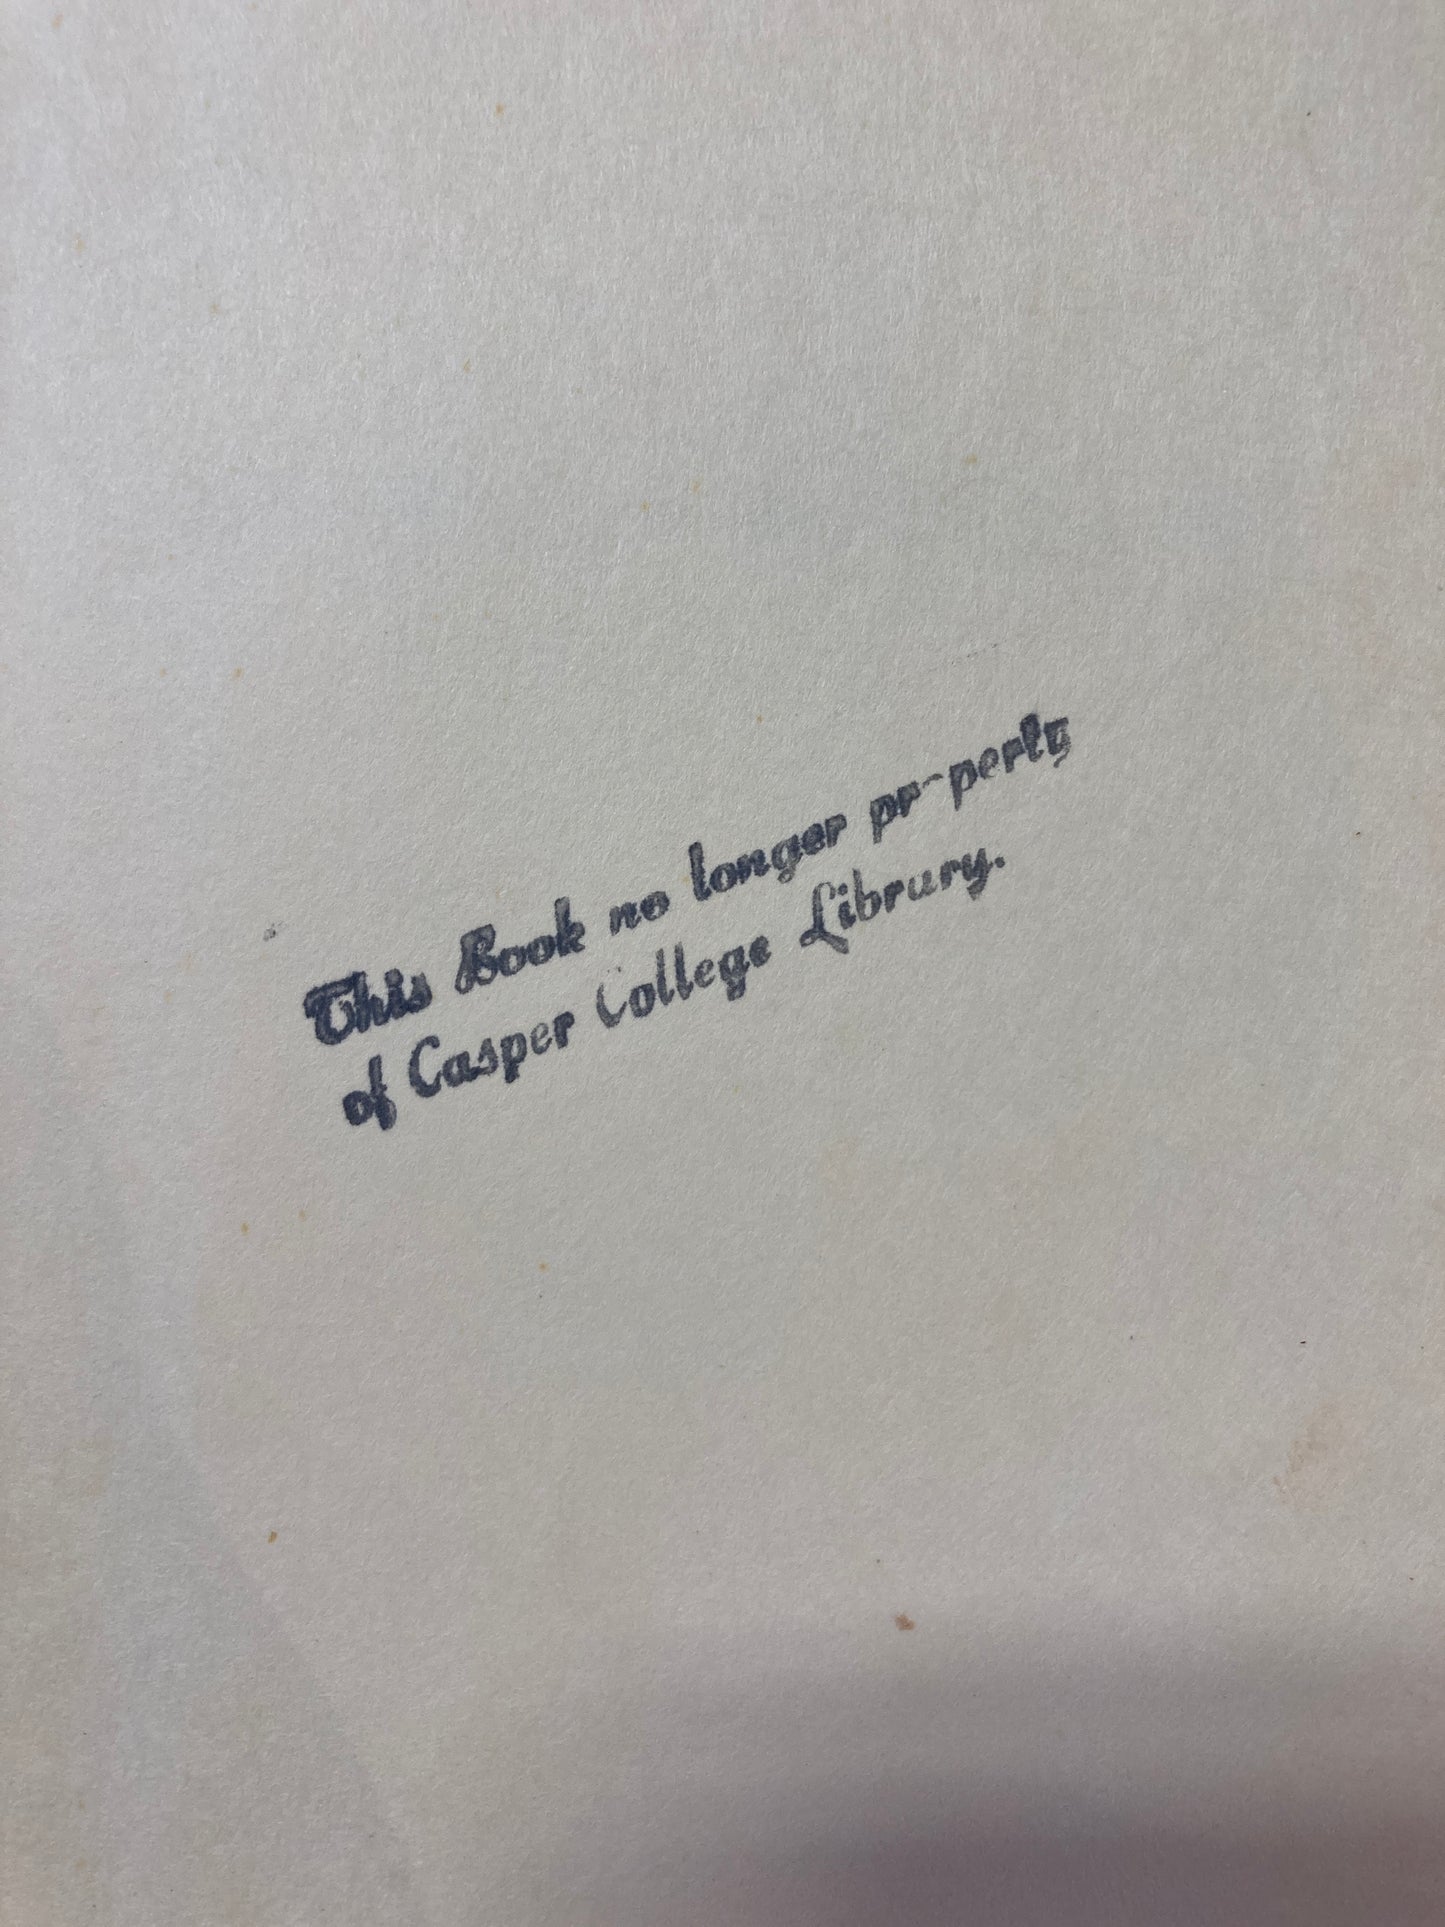 This Book no longer property
of Casper College Library.